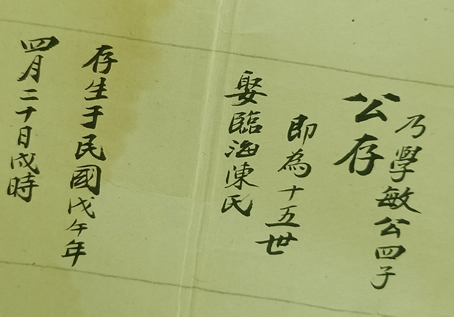 乃學敏公四子
公存
即為十五世
娶臨海陳氏
存生于民國戊午年
四月二十日戌時